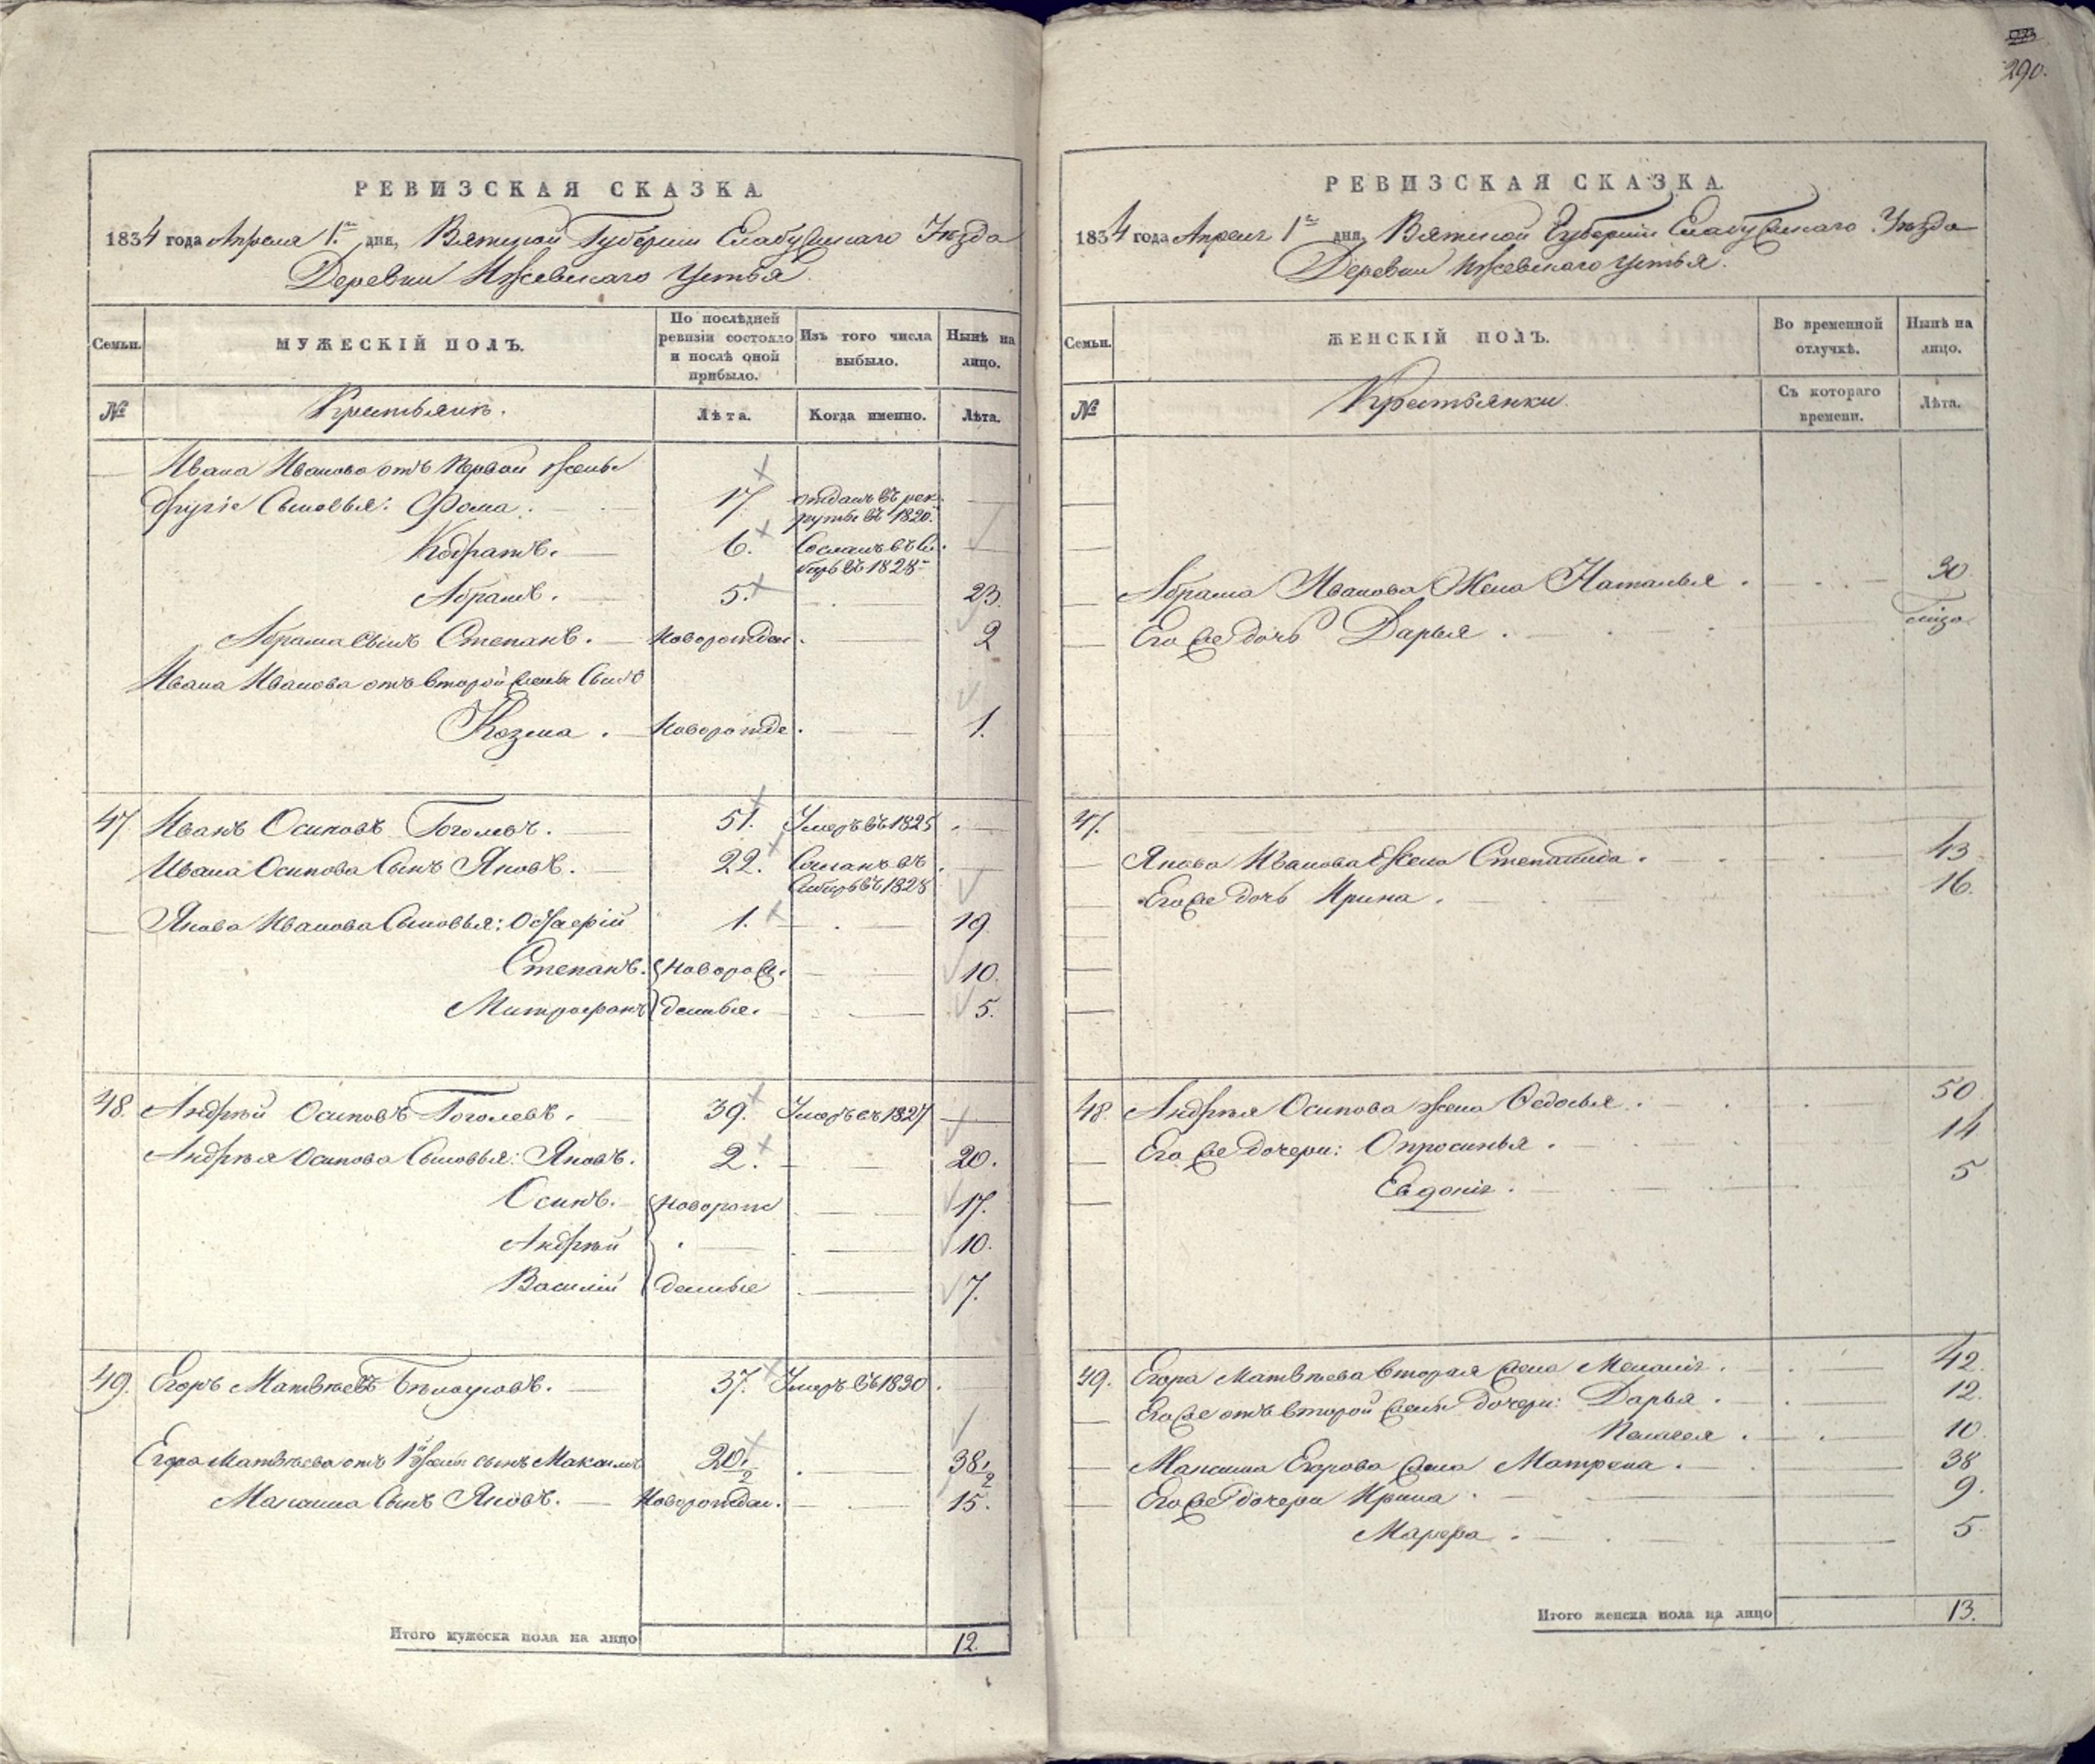 290.
РЕВИЗСКАЯ СКАЗКА
1834 года Апреля 1го дня, Вятской Губернии Елабужскаго Уѣзда
Деревни Ижевскаго Устья.
Семьи.
МУЖЕСКІЙ ПОЛЪ.
По послѣдней ревизіи состояло и послѣ оной прибыло.
Изъ того числа выбыло.
Нынѣ на лицо.
№
Крестьянъ.
Лѣта.
Когда именно.
Лѣта.
Ивана Иванова отъ первой жены
другіе Сыновья: Фома. 17 отданъ въ рекруты въ 1820.
Кодратъ. 6. Сосланъ въ Сибирь въ 1828
Абрамъ. 5. 23.
Абрама сынъ Степанъ. новорожден. 2
Ивана Иванова отъ второй жены Сынъ
Козма. новорожде. 1.
47 Иванъ Осиповъ Гоголевъ. 51. Умеръ въ 1825
Ивана Осипова Сынъ Яковъ. 22. Сосланъ въ Сибирь въ 1828
Якова Иванова Сыновья: 1. 19
Степанъ. новорож. 10.
Митрофанъ денные. 5.
48. Андрѣй Осиповъ Гоголевъ. 39. Умеръ въ 1827
Андрѣя Осипова Сыновья: Яковъ. 2. 20.
Осипъ. новорож 17.
Андрѣй 10.
Василій денные 7.
49. Егоръ Матвѣевъ Бѣлоусовъ. 37. Умеръ въ 1830.
Егора Матвѣева отъ 1й жены сынъ Максимъ 20 1/2 38 1/2
Максима Сынъ Яковъ. Новорожден. 15.
Итого мужеска пола на лицо 12.
РЕВИЗСКАЯ СКАЗКА
1834 года Апреля 1го дня, Вятской Губерніи Елабужскаго Уѣзда
Деревни Ижевскаго Устья.
Семьи.
ЖЕНСКІЙ ПОЛЪ.
Во временной отлучкѣ.
Нынѣ на лицо.
№
Крестьянки.
Съ котораго времени.
Лѣта.
Абрама Иванова Жена Наталья. 30
Его же дочь Дарья.
47.
Якова Иванова жена Степанида. 43
Его же дочь Ирина. 16.
48. Андрѣя Осипова жена Ѳедосья. 50
Его же дочери: Опросинья. 14
Евдокія. 5
49. Егора Матвѣева вторая жена Меланія. 42
Его же отъ второй жены дочери: Дарья. 12.
Пелагея. 10
Максима Егорова жена Матрена. 38
Его же дочери Ирина. 9.
Марфа. 5
Итого женска пола на лицо 13.